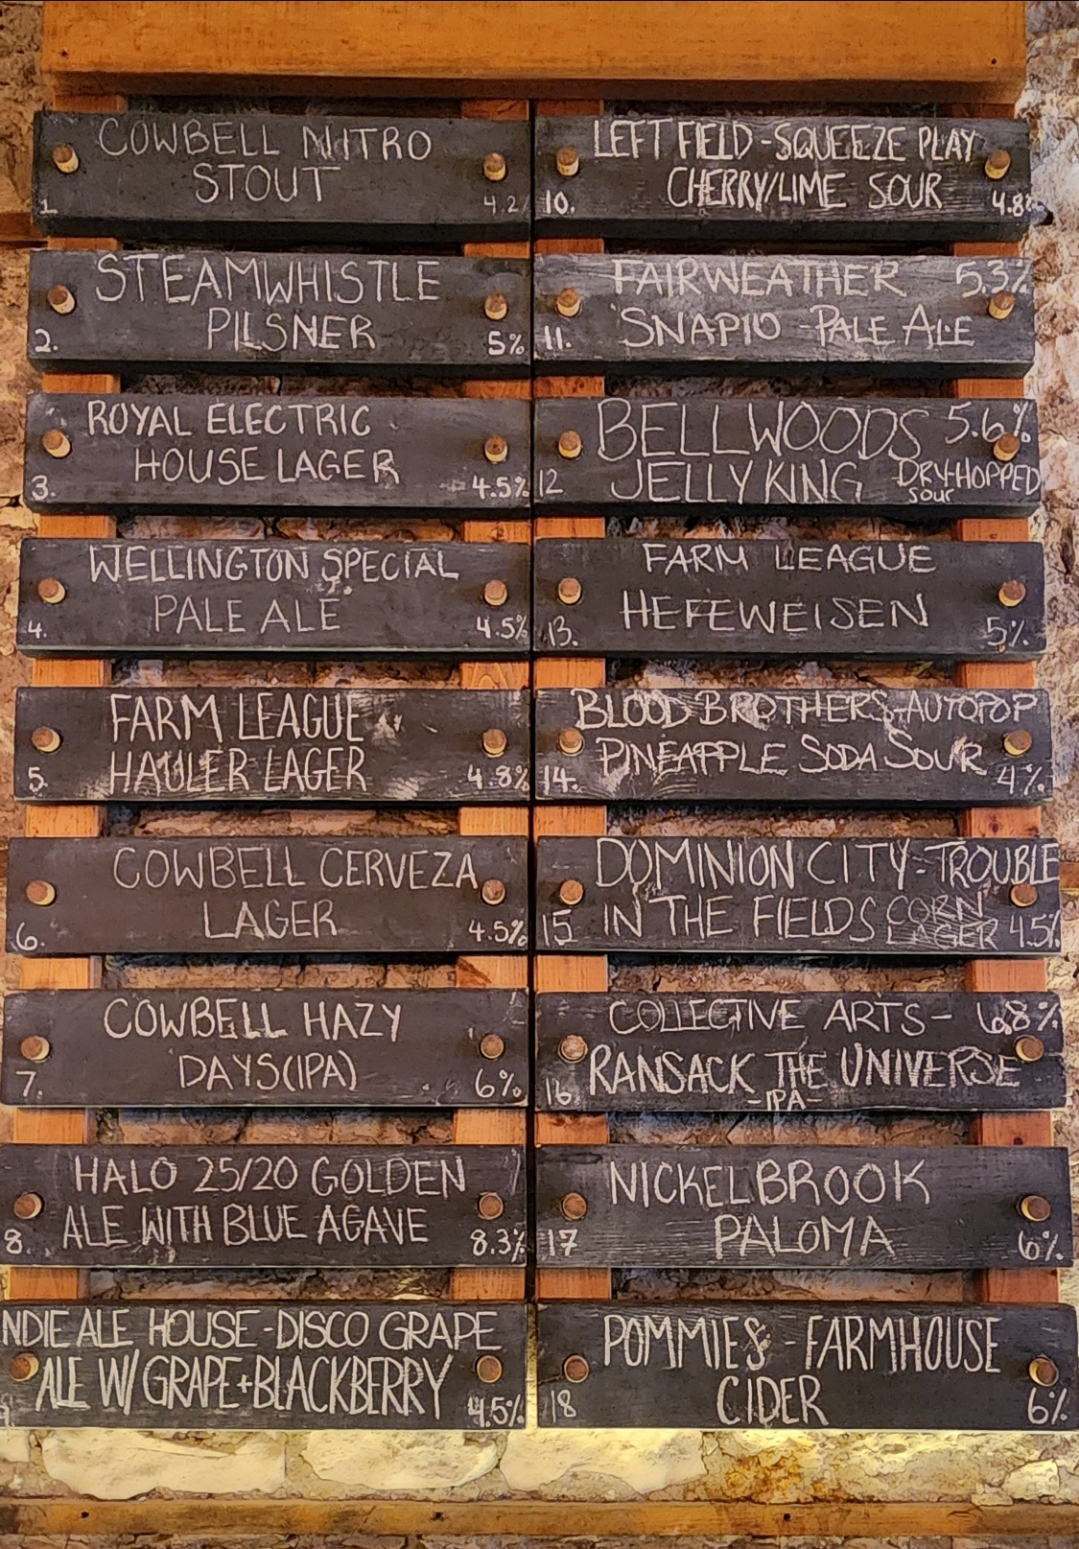 COWBELL NITRO
STOUT
1 4.2
STEAMWHISTLE
PILSNER
2. 5%
ROYAL ELECTRIC
HOUSE LAGER
3. 4.5%
WELLINGTON SPECIAL
PALE ALE
4. 4.5%
FARM LEAGUE
HAULER LAGER
5. 4.8%
COWBELL CERVEZA
LAGER
6. 4.5%
COWBELL HAZY
DAYS(IPA)
7. 6%
HALO 25/20 GOLDEN
ALE WITH BLUE AGAVE
8. 8.3%
NDIE ALE HOUSE-DISCO GRAPE
ALE W/ GRAPE+BLACKBERRY
4.5%
LEFT FIELD-SQUEEZE PLAY
CHERRY/LIME SOUR
10. 4.8%
FAIRWEATHER 5.3%
11. SNAPIO -PALE ALE
BELLWOODS 5.6%
12 JELLY KING DRY-HOPPED
sour
FARM LEAGUE
HEFEWEISEN
13. 5%
BLOOD BROTHERS-AUTOPOP
PINEAPPLE SODA SOUR
14. 4%
DOMINION CITY-TROUBLE
15 IN THE FIELDS CORN
LAGER 4.5%
COLLECTIVE ARTS- 6.8%
16 RANSACK THE UNIVERSE
-IPA-
NICKELBROOK
PALOMA
17 6%
POMMIES - FARMHOUSE
CIDER
18 6%